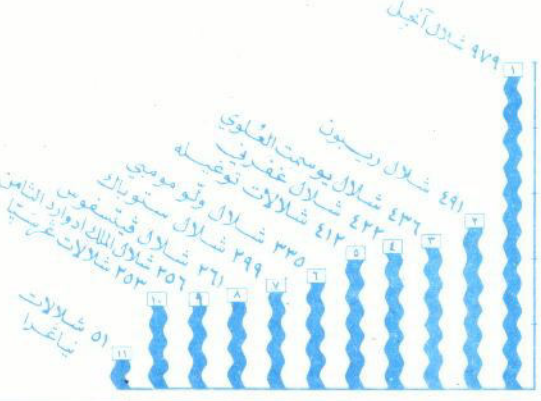 ٩٧٩ شلال آنجل
٤٩١ شلال ريبون
٤٣٦ شلال يوسمت العُلوي
٤٢٢ شلال غفرني
٤١٢ شلالات توغيله
٣٣٥ شلال ولّومومبي
٢٩٩ شلال ستوباك
٢٦١ شلال فيتسفوس
٢٥٦ شلال الملك ادوارد الثامن
٢٥٣ شلالات غرستبا
٥١ شلالات
نياغرا
١
٢
٣
٤
٥
٦
٧
٨
٩
١٠
١١